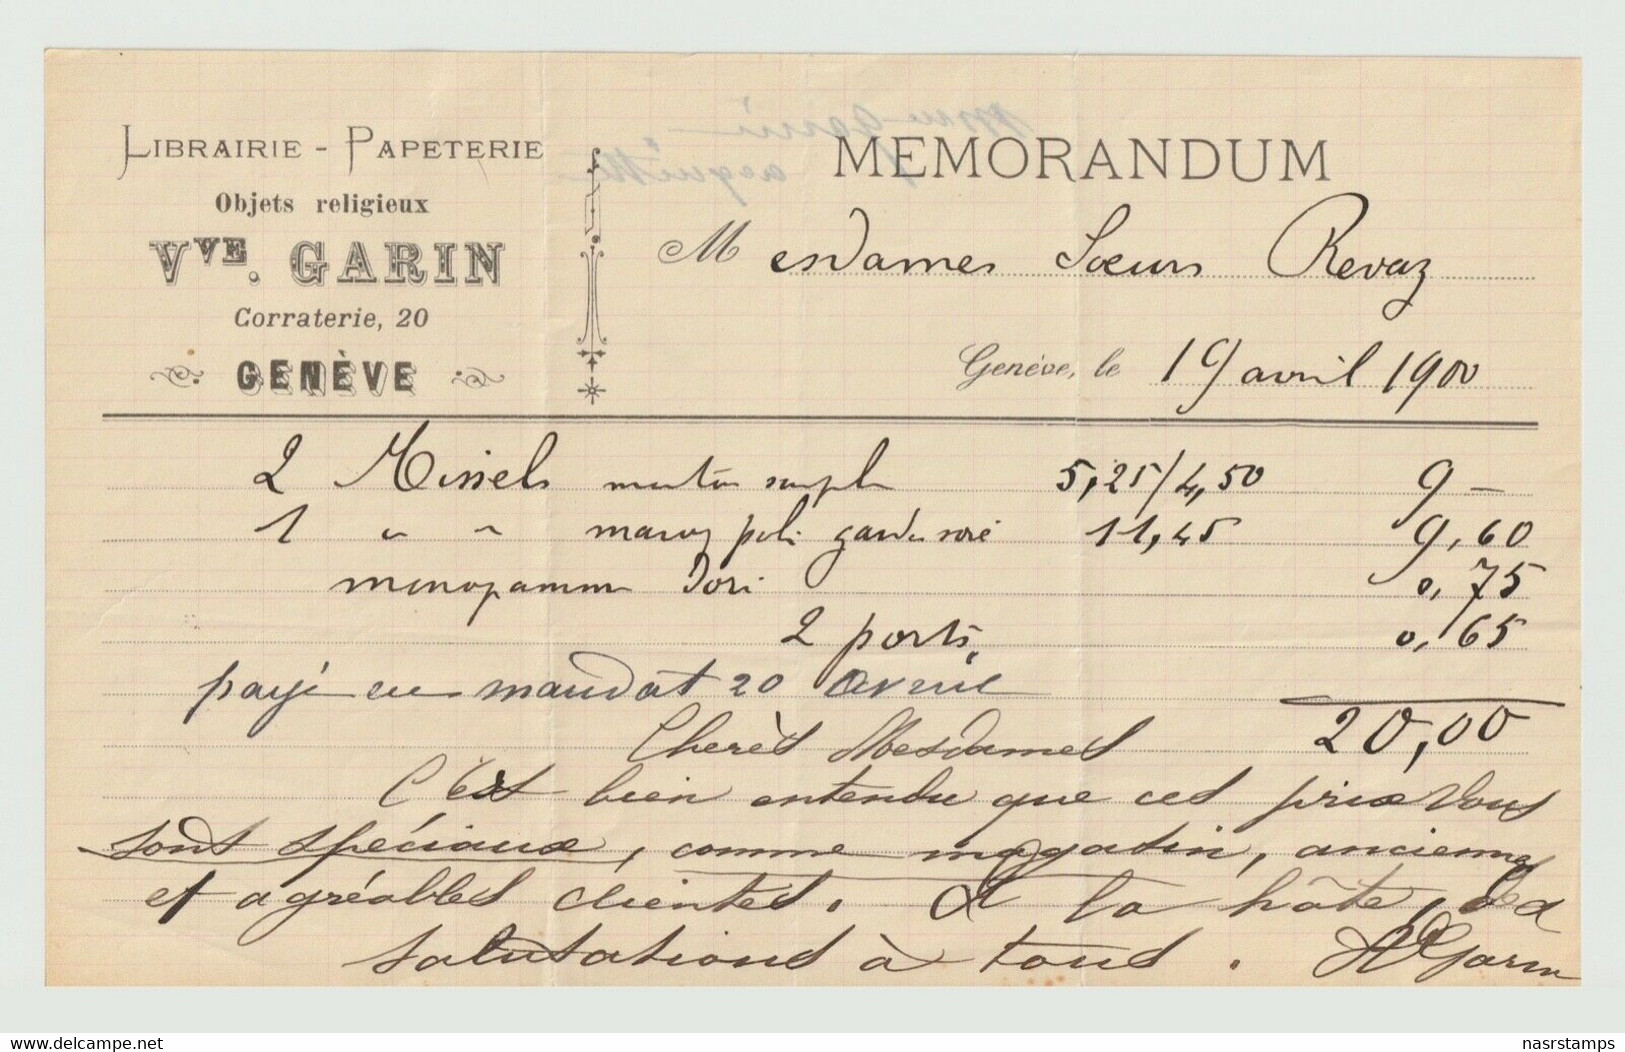 LIBRAIRIE - PAPETERIE
Objets religieux
VVE. GARIN
Corraterie, 20
GENÈVE
MEMORANDUM
Mesdames Sœurs Revaz
Genève, le 19 avril 1900
2 Missels mouton souple 5,25/4,50 9 –
1 " " maroq poli garde soie 11,45 9,60
monogramme Doré 0,75
2 ports 0,65
payé en mandat 20 avril
20,00
Cherès Mesdames
C'est bien entendu que ces prix vous
sont spéciaux, comme magasin, anciennes
et agréables clientes. A la hâte,
salutations à tous. Garin
delcampe.net
nasrstamps